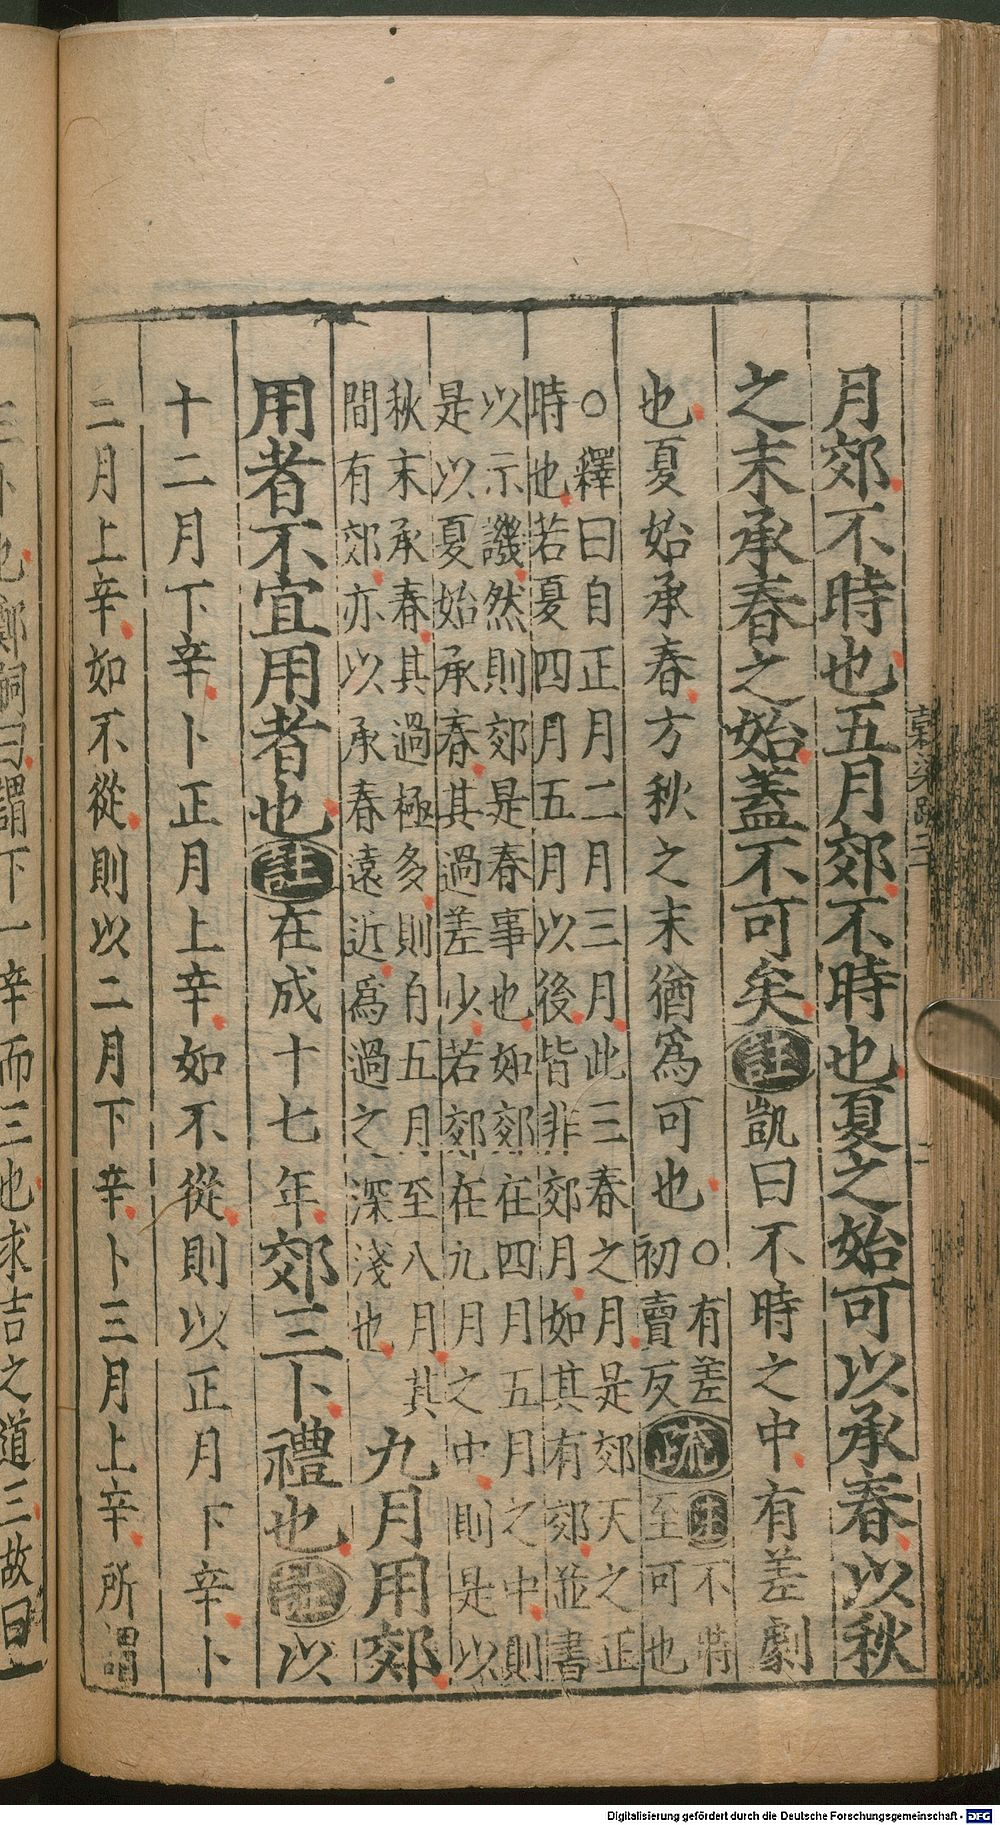 月郊不時也五月郊不時也夏之始可以承春以秋
之末承春之始蓋不可矣註凱曰不時之中有差劇
也夏始承春方秋之末猶爲可也○有差
初賣反疏註不時
至可也
○釋曰自正月二月三月此三春之月是郊天之正
時也若夏四月五月以後皆非郊月如其有郊並書
以示譏然則郊是春事也如郊在四月五月之中則
是以夏始承春其過差少若郊在九月之中則是以
秋末承春其過極多則自五月至八月其
間有郊亦以承春遠近爲過之深淺也
九月用郊
用者不宜用者也註在成十七年郊三卜禮也註以
十二月下辛卜正月上辛如不從則以正月下辛卜
二月上辛如不從則以二月下辛卜三月上辛所謂
三卜也鄭嗣曰謂下一辛而三也求吉之道三故曰
Digitalisierung gefördert durch die Deutsche Forschungsgemeinschaft - DFG